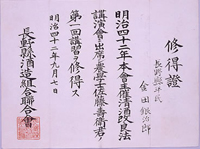 修得證
長野縣平民
金田銀治郎
明治四十二年本會主催清酒改良法
講演會ニ出席シ農學士佐藤壽衛君ノ
第一回講習ヲ修得ス
明治四十二年九月七日
長野縣酒造組合聯合會